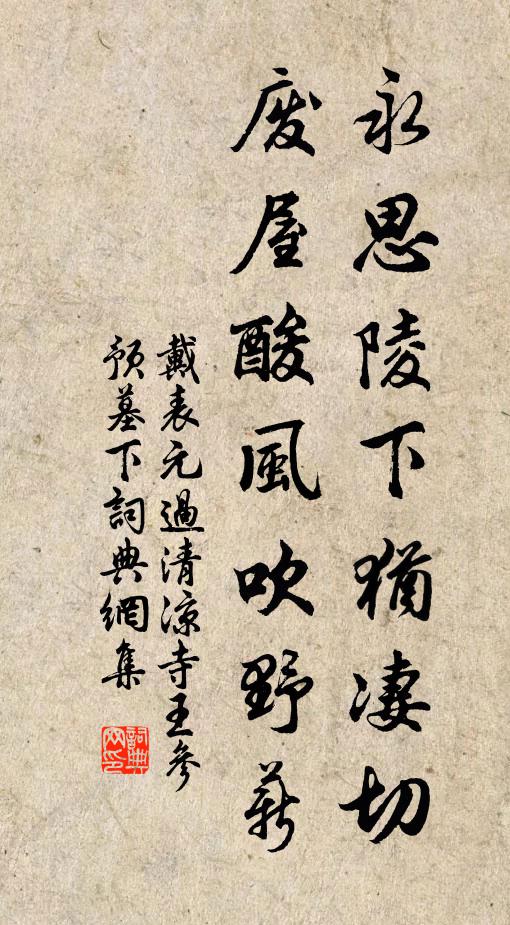 永思陵下猶淒切
廢屋酸風吹野蔌
戴表元過清涼寺王參
預墓下詞典網集
詞典网印